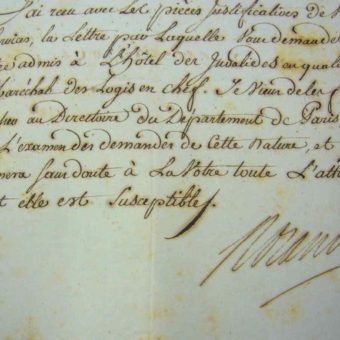 J'ai reçu avec les pièces justificatives de
la Lettre par Laquelle Vous demande
admis à L'hôtel des Invalides en quali
Maréchal des Logis en chef. Je Viens de les
au Directoire du Département de Paris
L'examen des demandes de Cette Nature, et
sans doute à La Vôtre toute L'att
elle est Susceptible